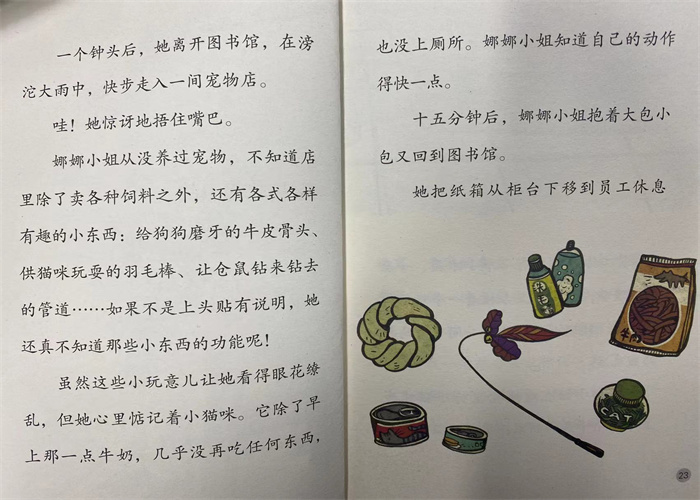 一个钟头后，她离开图书馆，在滂
沱大雨中，快步走入一间宠物店。
哇！她惊讶地捂住嘴巴。
娜娜小姐从没养过宠物，不知道店
里除了卖各种饲料之外，还有各式各样
有趣的小东西：给狗狗磨牙的牛皮骨头、
供猫咪玩耍的羽毛棒、让仓鼠钻来钻去
的管道……如果不是上头贴有说明，她
还真不知道那些小东西的功能呢！
虽然这些小玩意儿让她看得眼花缭
乱，但她心里惦记着小猫咪。它除了早
上那一点牛奶，几乎没再吃任何东西，
也没上厕所。娜娜小姐知道自己的动作
得快一点。
十五分钟后，娜娜小姐抱着大包小
包又回到图书馆。
她把纸箱从柜台下移到员工休息
牛肉
CAT
23